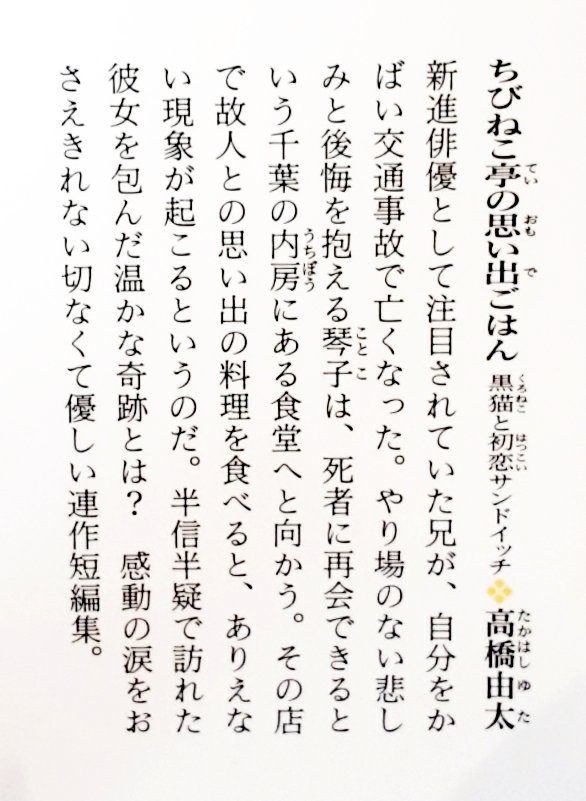 ちびねこ亭の思い出ごはん 黒猫と初恋サンドイッチ 高橋由太
新進俳優として注目されていた兄が、自分をか
ばい交通事故で亡くなった。やり場のない悲し
みと後悔を抱える琴子は、死者に再会できると
いう千葉の内房にある食堂へと向かう。その店
で故人との思い出の料理を食べると、ありえな
い現象が起こるというのだ。半信半疑で訪れた
彼女を包んだ温かな奇跡とは? 感動の涙をお
さえきれない切なくて優しい連作短編集。